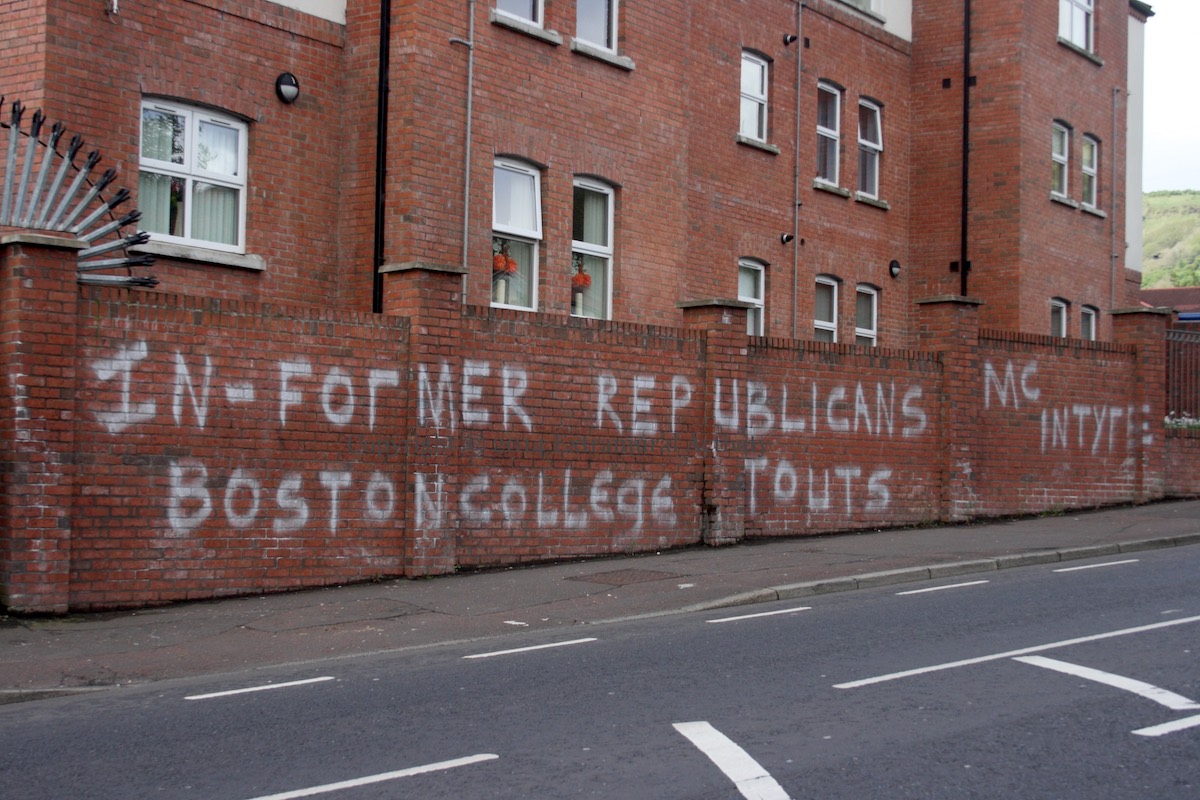 IN-FORMER REPUBLICANS MC INTYRE
BOSTON COLLEGE TOUTS